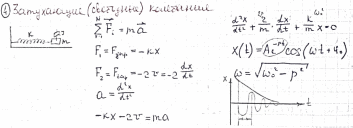 ① Затухающие (свободные) колебания
K
m
N
Σ F⃗ᵢ = ma⃗
i
F₁ = Fупр = -kx
F₂ = Fсопр = -2v = -2 dx/dt
a = d²x/dt²
-kx - 2v = ma
d²x/dt² + 2/m dx/dt + k/m x = 0
ω₀²
x(t) = Ae⁻ᵖᵗ cos(ωt + φ₀)
x ω = √(ω₀² - p²)
t